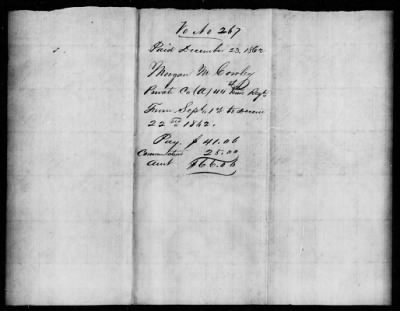 Vo No 267
Paid December 23, 1862
Morgan M
Private Co (A) 44th Regt
From Sept 1st to Decem
22nd 1862.
Pay $ 41.06
Commutation 25.00
Amt $66.06